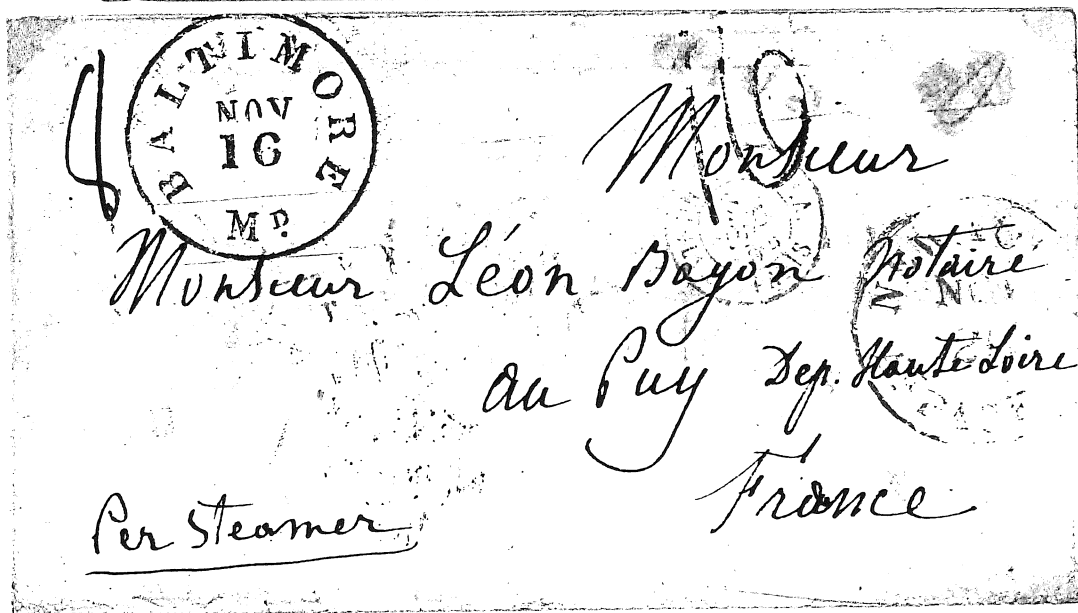 8
BALTIMORE
NOV
16
MD.
Monsieur
Monsieur Léon Boyon Notaire
au Puy Dep. Haute Loire
France
Per Steamer